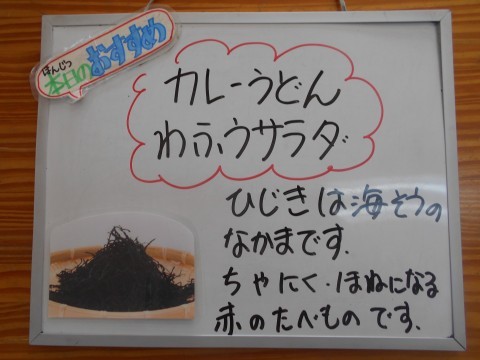 ほんじつ
本日のおすすめ
カレーうどん
わふうサラダ
ひじきは海そうの
なかまです.
ちゃにく・ほねになる
赤のたべものです.